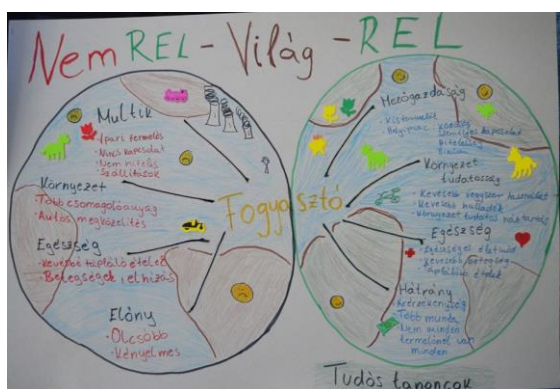 Nem REL - Világ - REL
Multik
• Ipari termelés
• Nincs kapcsolat
• Nem hiteles
• Szállítások
Környezet
• Több csomagolóanyag
• Autós megközelítés
Egészség
• Kevésbé tápláló ételek
• Betegségek, elhízás
Előny
• Olcsóbb
• Kényelmes
Fogyasztó
Mezőgazdaság
• Kistermelő
• Helyi piac
Környezet
tudatosság
• Kevesebb vegyszer használat
• Kevesebb hulladék
• Környezet tudatos
Egészség
• Egészséges életmód
• Kevesebb betegség
• Tápláló ételek
Hátrány
• Több munka
• Nem minden
termelőnél van
minden
Tudós tanoncok